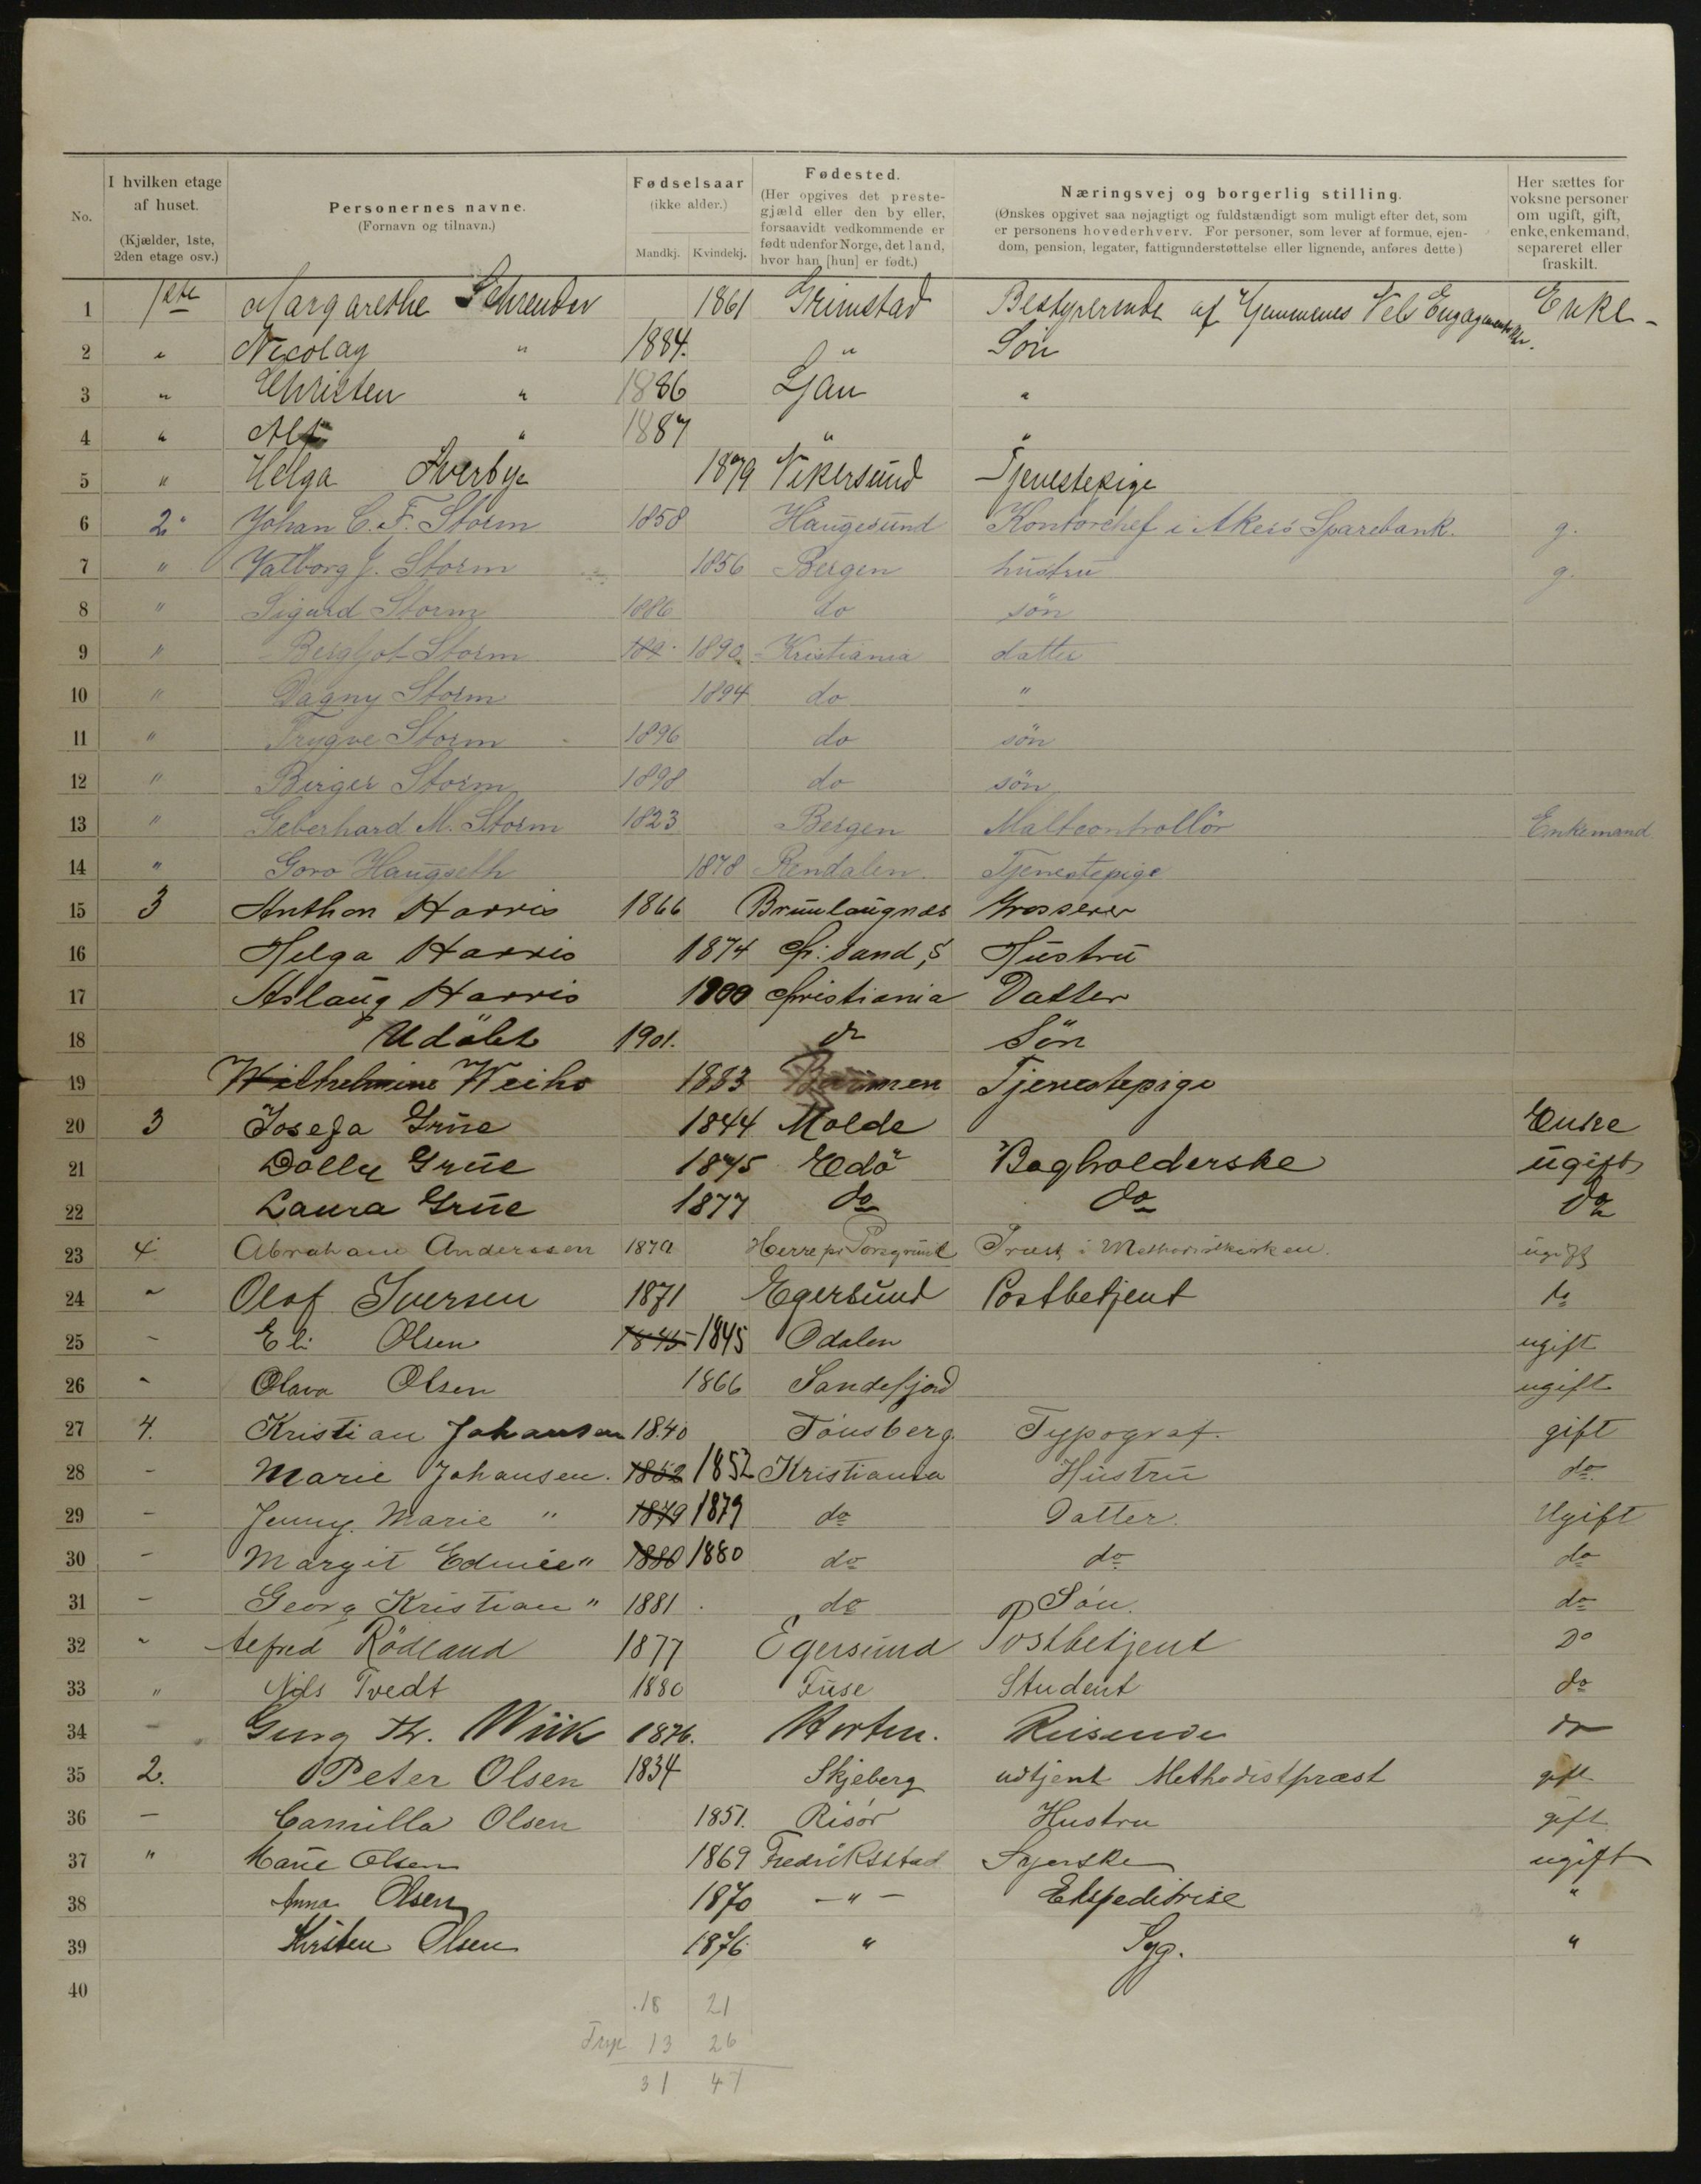 No.
I hvilken etage af huset. (Kjælder, 1ste, 2den etage osv.)
Personernes navne. (Fornavn og tilnavn.)
Fødselsaar (ikke alder.) Mandkj. Kvindekj.
Fødested. (Her opgives det prestegjæld eller den by eller, forsaavidt vedkommende er født udenfor Norge, det land, hvor han [hun] er født.)
Næringsvej og borgerlig stilling. (Ønskes opgivet saa nøjagtigt og fuldstændigt som muligt efter det, som er personens hovederhverv. For personer, som lever af formue, ejendom, pension, legater, fattigunderstøttelse eller lignende, anføres dette)
Her sættes for voksne personer om ugift, gift, enke, enkemand, separeret eller fraskilt.
1 1ste Margarethe 1861 Grimstad Bestyrerinde af Hjemmenes Vel Enke-
2 " Nicolay " 1884. " Søn
3 " Christen " 1886 Ljan "
4 " Alf " 1887 " "
5 " Helga Sverby 1879 Vikersund Tjenestepige
6 2" Johan C. F. Storm 1858 Haugesund Kontorchef i Akers Sparebank. g.
7 " Valborg J. Storm 1856 Bergen hustru g.
8 " Sigurd Storm 1886 do søn
9 " Bergljot Storm 189 1890 Kristiania datter
10 " Dagny Storm 1894 do "
11 " Trygve Storm 1896 do søn
12 " Birger Storm 1898 do søn
13 " Geberhard M. Storm 1823 Bergen Maltcontrollör Enkemand
14 " Goro Haugseth 1878 Rendalen. Tjenestepige
15 3 Anthon Harris 1866 Brunlaugnæs Grosserer
16 Helga Harris 1874 Chr. sand, S Hustru
17 Aslaug Harris 1900 Christiania Datter
18 Udöbt 1901. do Sön
19 Wilhelmine Weiho 1883 Tjenestepige
20 3 Josefa Grüe 1844 Molde Enke
21 Dolly Grüe 1875 Edö Bogholderske ugift
22 Laura Grüe 1877 do do do
23 4 Abraham Anderssen 1879 Herre pr Porsgrund Præst i Methodistkirken. ugift
24 " Olaf Iversen 1871 Egersund Postbetjent do
25 - Eli Olsen 1845 1845 Odalen ugift
26 " Olava Olsen 1866 Sandefjord ugift
27 4. Kristian Johansen 1840 Tønsberg. Typograf. gift
28 - Marie Johansen. 1852 1852 Kristiania Hustru do
29 - Jenny Marie " 1879 1879 do Datter. Ugift
30 - Margit Edmée " 1880 1880 do do do
31 - Georg Kristian " 1881 do Søn. do
32 " Alfred Rödland 1877 Egersund Postbetjent Do
33 " Nils Tvedt 1880 Fuse Student do
34 - Georg Th. Wiik 1876. Horten. Reisende do
35 2. Peter Olsen 1834 Skjeberg udtjent Methodistpræst gift
36 - Camilla Olsen 1851. Risör Hustru gift
37 " Marie Olsen 1869 Fredriksstad Syerske ugift
38 Anna Olsen 1870 - " - Ekspeditrise "
39 Kirsten Olsen 1876 " Syg. "
40
18 21
13 26
31 47